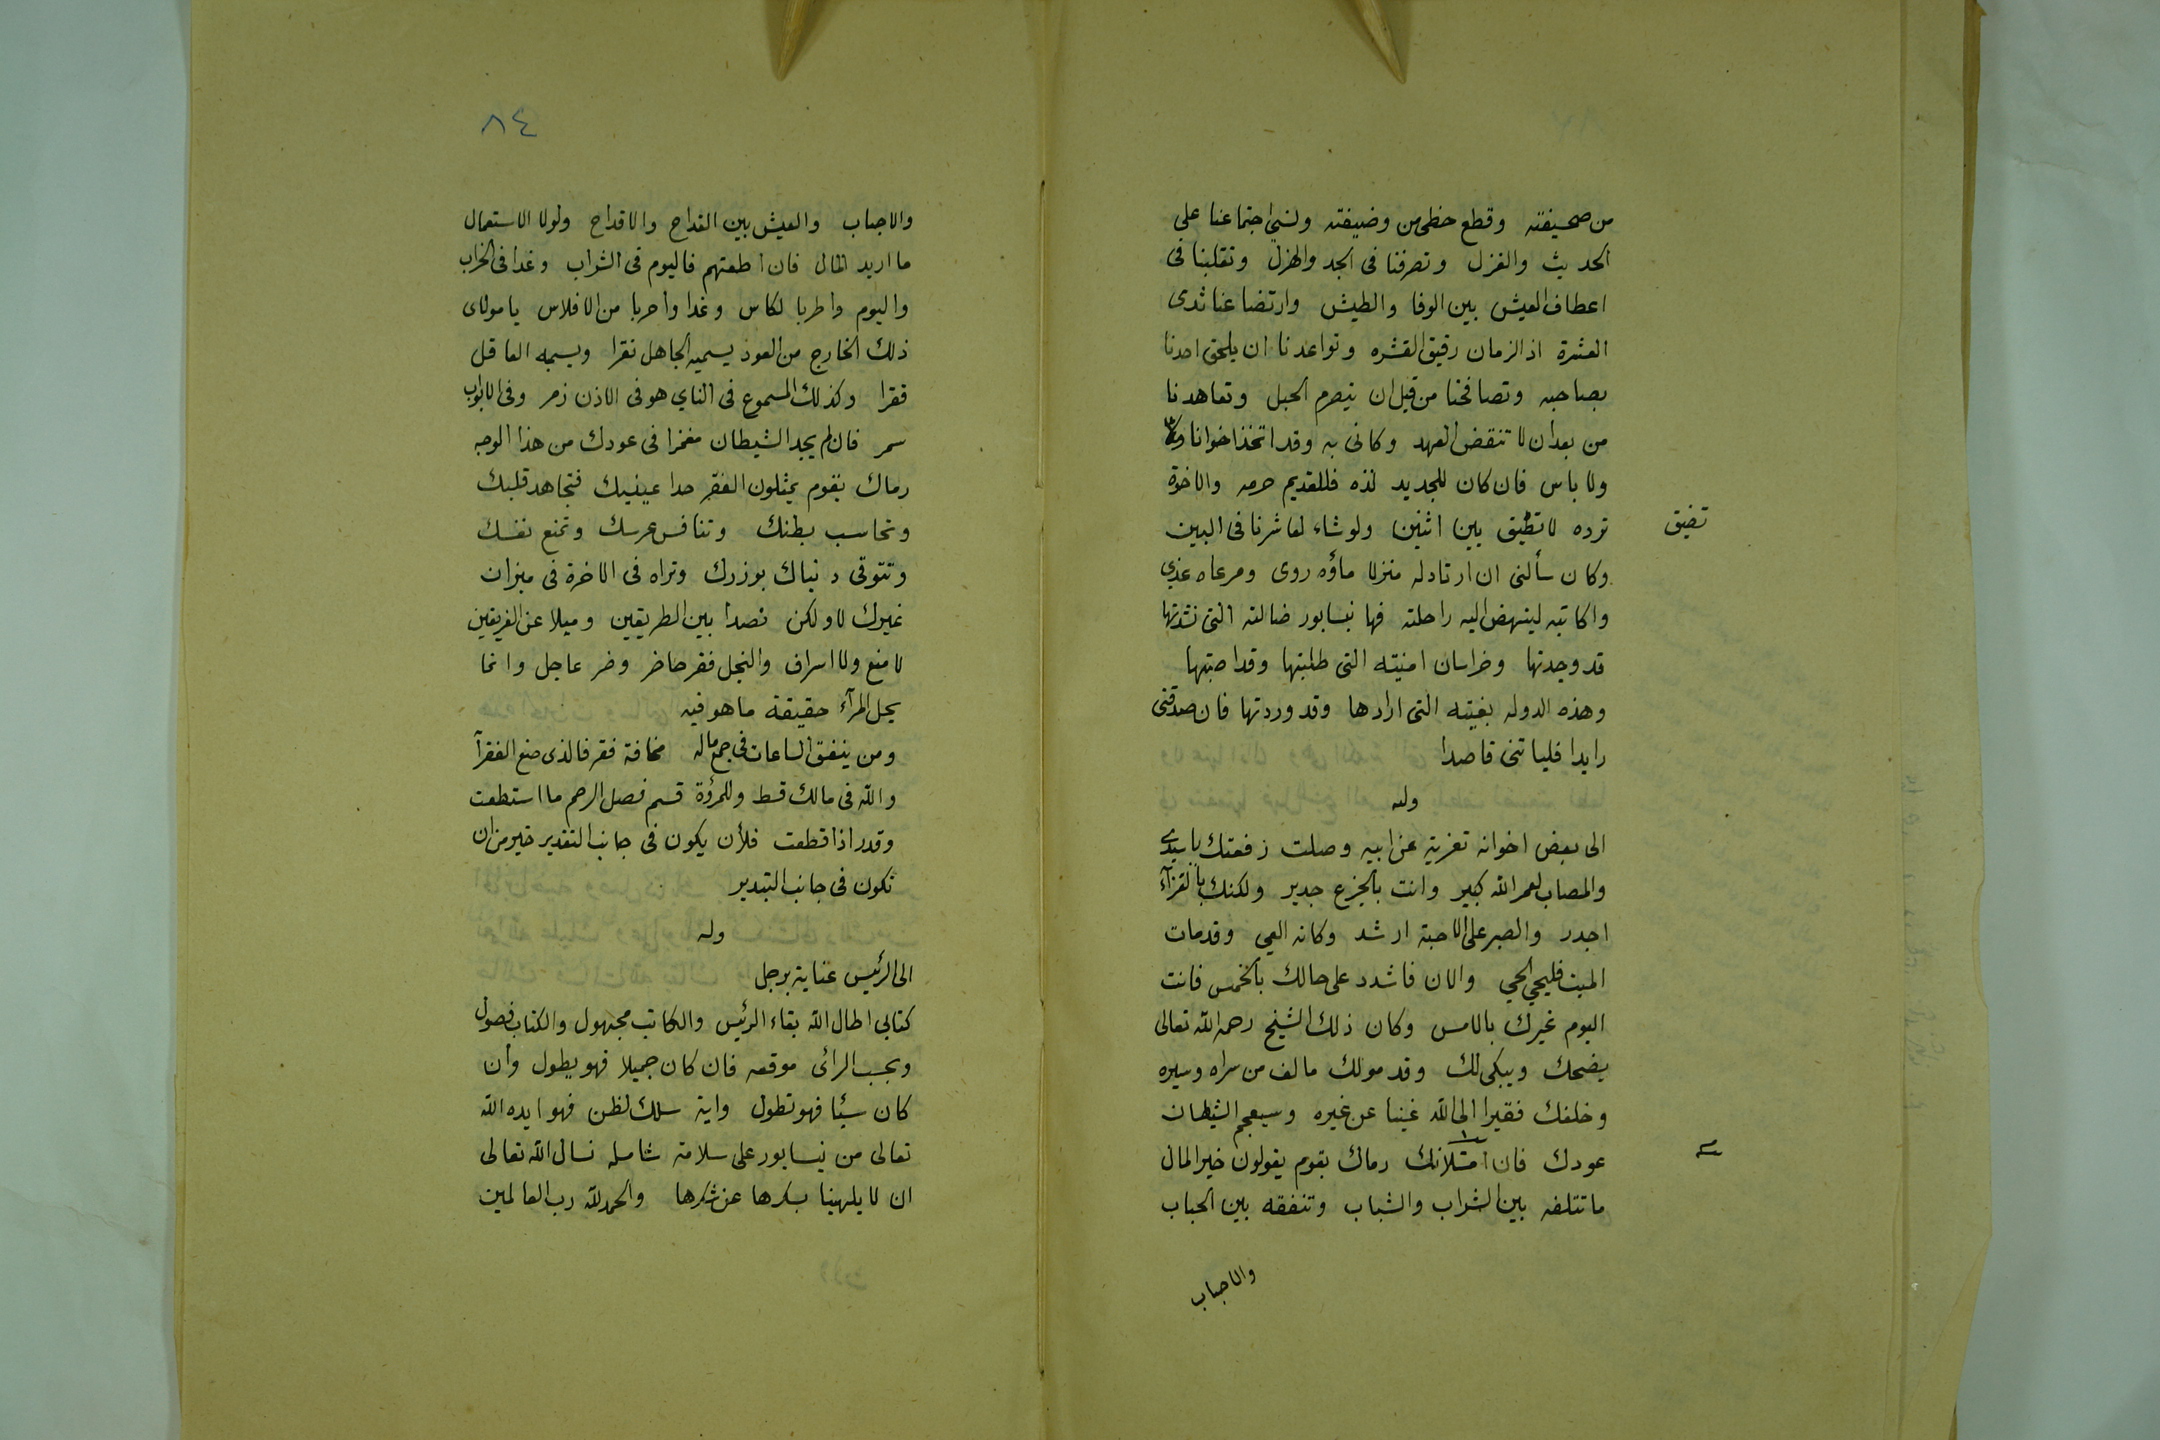 من صحيفته وقطع حظي من وضيفته ونسي اجتماعنا على
الحديث والغزل وتصرفنا في الجد والهزل وتقلبنا في
اعطاف العيش بين الوفا والطيش وارتضاعنا ثدى
العشرة اذ الزمان رقيق القشره وتواعدنا ان يلحق احدنا
بصاحبه وتصافحنا من قبل ان يتصرم الحبل وتعاهدنا
من بعد ان لا تنقض العهد وكانى به وقد اتخذ اخوانا
ولا باس فان كان للجديد لذه فللقديم حرمه والاخوة
ترده لا تطيق بين اثنين ولو شاء لعاشرنا في البين
تضيق
وكان سألنى ان ارتاد له منزلا مأؤه روى ومرعاه غذي
واكاتبه لينهض اليه راحلته فها نيسابور ضالته التى نشدتها
قد وجدتها وخراسان امنيته التى طلبتها وقد اصبتها
وهذه الدوله بغيته التى ارادها وقد وردتها فان صدقنى
رايدا فلياتنى قاصدا
وله
الى بعض اخوانه تعزية عن ابيه وصلت رقعتك ياسيدي
والمصاب لعمر الله كبير وانت بالجزع جدير ولكنك بالعزآء
اجدر والصبر على الاحبة ارشد وكانه الغي وقد مات
الميت فليحي الحي والان فاشدد على حالك بالخمس فانت
اليوم غيرك بالامس وكان ذلك الشيخ رحمه الله تعالى
يضحك ويبكى لك وقد مولك ما الف من سراه وسيره
وخلفك فقيرا الى الله غنيا عن غيره وسيعجم الشيطان
عودك فان استلانك رماك بقوم يقولون خير المال
ما تتلفه بين الشراب والشباب وتنفقه بين الحباب
والاحباب
٨٤
والاحباب والعيش بين القداح والاقداح ولولا الاستعمال
ما اريد المال فان اطعتهم فاليوم في الشراب وغدا في الخراب
واليوم واطربا لكاس وغدا واحربا من الافلاس يا مولاى
ذلك الخارج من العود يسميه الجاهل نقرا ويسمه العاقل
فقرا وكذلك المسموع في الناي هو في الاذن زمر وفي الابواب
سمر فان لم يجد الشيطان مغمزا في عودك من هذا الوجه
رماك بقوم يمثلون الفقر حدا عينيك فتجاهد قلبك
وتحاسب بطنك وتنافس عرسك وتمنع نفسك
وتتوقى دنياك بوزرك وتراه في الاخرة في ميزان
غيرك لا ولكن قصدا بين الطريقين وميلا عن الفريقين
لا منع ولا اسراف والبخل فقر حاضر وضر عاجل وانما
يبخل المرآء حقيقة ما هو فيه
ومن ينفق الساعات في جمع ماله مخافة فقر فالذى صنع الفقرآ
والله في مالك قسط وللمرؤة قسم فصل الرحم ما استطعت
وقدر اذا قطعت فلأن يكون في جانب التقدير خير من ان
تكون في جانب التبذير
وله
الى الرئيس عناية برجل
كتابي اطال الله بقاء الرئيس والكاتب مجهول والكتاب فصول
وبحسب الرائ موقعه فان كان جميلا فهو يطول وأن
كان سيئا فهو تطول واية سلك الظن فهو ايده الله
تعالى من نيسابور على سلامة شامله نسال الله تعالى
ان لا يلهينا بسكرها عن شكرها والحمد لله رب العالمين